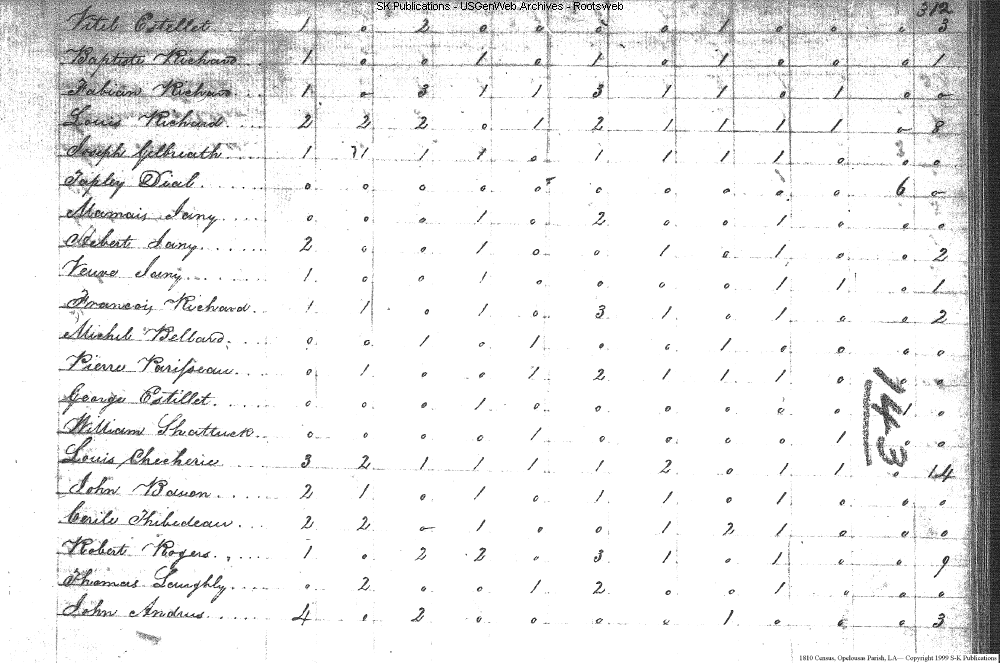 SK Publications - USGenWeb Archives - Rootsweb
312
Vitel Estellet 1 0 2 0 0 0 1 0 0 0 3
Baptiste Richard 1 0 0 1 0 1 0 1 0 0 0 1
Fabian Richard 1 0 3 1 1 3 1 1 0 1 0 0
Louis Richard 2 2 2 0 1 2 1 1 1 1 0 8
Joseph Gilbreath 1 1 1 1 0 1 1 1 1 0 0 0
Tapley Dial 0 0 0 0 0 0 0 0 0 0 6 0
Mamais Jany 0 0 0 1 0 2 0 0 1 0 0 0
Hebert Jany 2 0 0 1 0 0 1 0 1 0 0 2
Veuve Jany 1 0 0 1 0 0 0 0 1 1 0 1
Francois Richard 1 1 0 1 0 3 1 0 1 0 0 2
Michil Bellard 0 0 1 0 1 0 0 1 0 0 0 0
Pierre Parisseau 0 1 0 0 1 2 1 1 1 0 0 0
George Estillet 0 0 0 1 0 0 0 0 0 0 1 0
William Shattuck 0 0 0 0 1 0 0 0 0 1 0 0
143
Louis Checherie 3 2 1 1 1 1 2 0 1 1 0 14
John Bauon 2 1 0 1 0 1 1 0 1 0 0 0
Cerile Thibedeau 2 2 0 1 0 0 1 2 1 0 0 0
Robert Rogers 1 0 2 2 0 3 1 0 1 0 0 9
Thomas Laughly 0 2 0 0 1 2 0 0 1 0 0 0
John Andrus 4 0 2 0 0 0 0 1 0 0 0 3
1810 Census, Opelousas Parish, LA -- Copyright 1999 S-K Publications